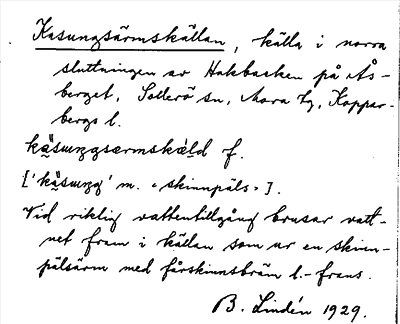 Kasungsärmskällan, källa i norra
sluttningen av Hakbacken på Ås-
berget, Sollerö sn, Mora tg, Koppar-
bergs l.
f.
m. "skinnpäls"].
Vid riklig vattentillgång brusar vatt-
net fram i källan som ur en skinn-
pälsärm med fårskinnsbräm l. frans.
B. Lindén 1929.